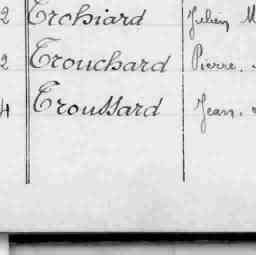 2 Trohiard Julien M
2 Trouchard Pierre.
4 Troussard Jean.